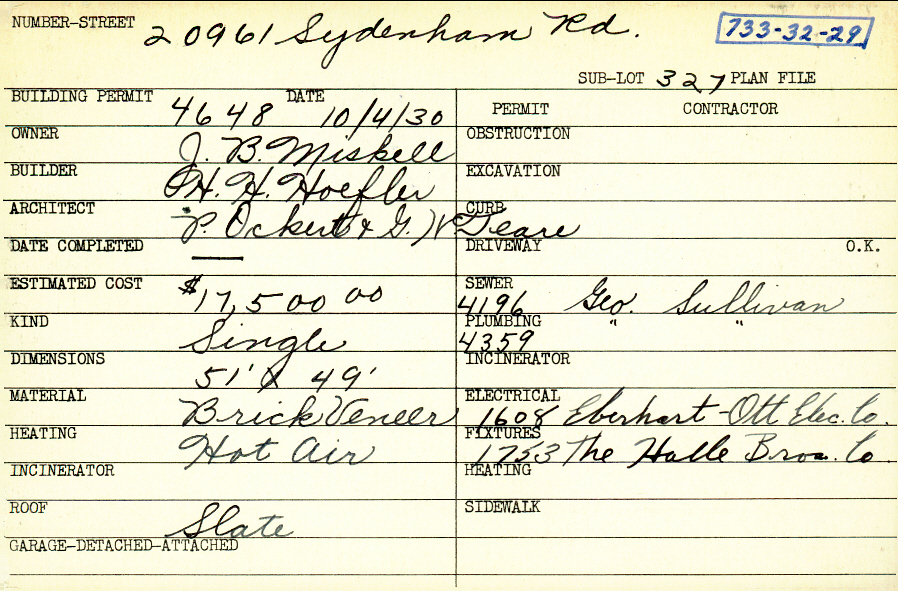 NUMBER-STREET 20961 Sydenham Rd. 733-32-29
SUB-LOT 327 PLAN FILE
BUILDING PERMIT 4648 DATE 10/4/30
PERMIT CONTRACTOR
OWNER J. B. Miskell
OBSTRUCTION
BUILDER H. H. Hoefler
EXCAVATION
ARCHITECT P. Ockert & G. W Teare
CURB
DATE COMPLETED —
DRIVEWAY O.K.
ESTIMATED COST $17,500 00
SEWER 4196 Geo. Sullivan
KIND Single
PLUMBING 4359 " "
DIMENSIONS 51' X 49'
INCINERATOR
MATERIAL Brick Veneer
ELECTRICAL 1608 Eberhart-Ott Elec. Co.
HEATING Hot Air
FIXTURES 1753 The Halle Bros. Co.
INCINERATOR
HEATING
ROOF Slate
SIDEWALK
GARAGE-DETACHED-ATTACHED